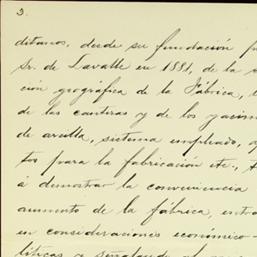 3.
ditamos, desde su fundación p
Sr. de Lavalle en 1881, de la
ción geográfica de la Fábrica,
de las canteras y de los yacim
de arcilla, sistema empleado,
tos para la fabricación etc.,
á demostrar la conveniencia
aumento de la fábrica, entra
en consideraciones económico-
líticas y señalando